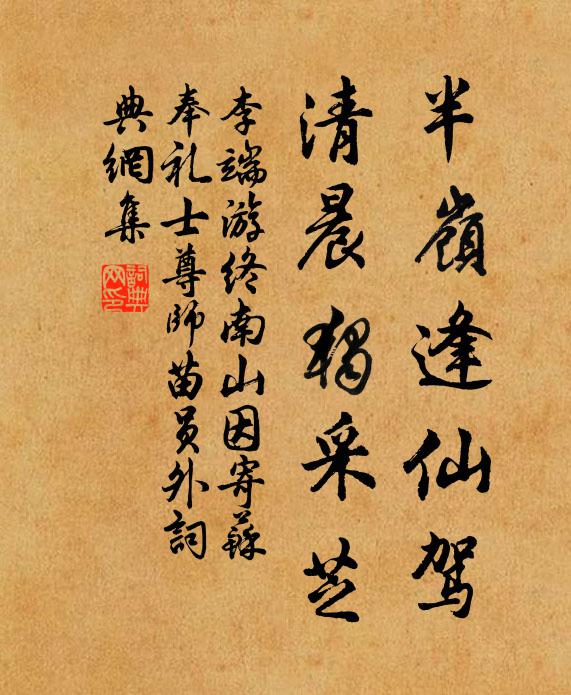 半嶺逢仙駕
清晨獨采芝
李端游终南山因寄蘇
奉礼士尊師苗员外詞
典網集
詞典网印